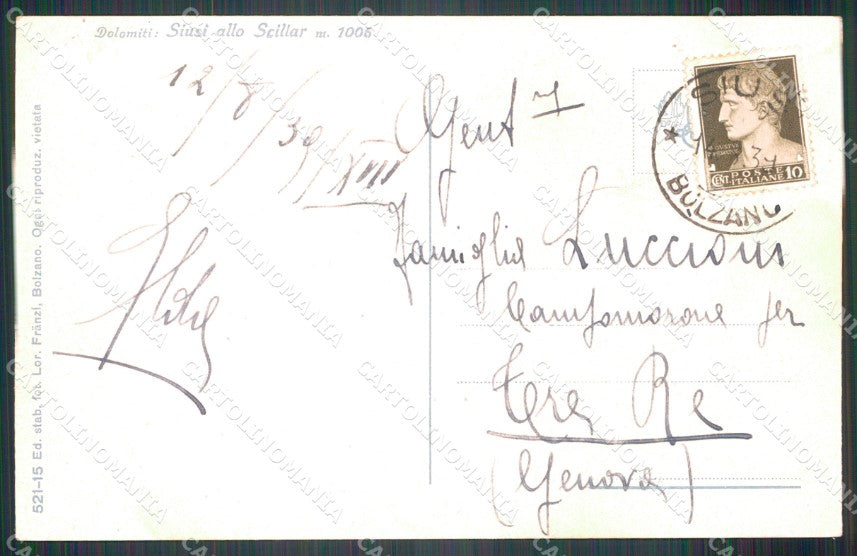 Dolomiti: Siusi allo Scillar m. 1006
12/8/39/XIII
Gent
Famiglia Luccioni
Campomorone per
Re
(Genova)
SIUSI
* BOLZANO
AUGUSTVS
POSTE
CENT ITALIANE 10
521-15 Ed. stab. fot. Lor. Fränzl, Bolzano. Ogni riproduz. vietata
CARTOLINOMANIA